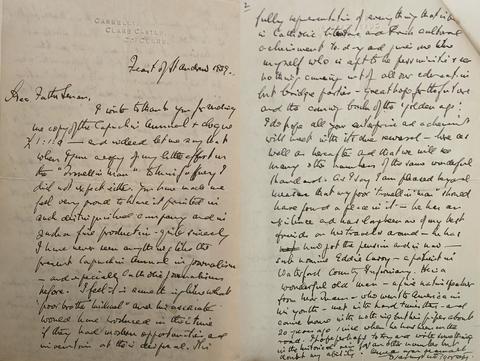 CARRELL
CLARE CASTLE,
CO. CLARE.
Feast of St Andrew 1939.
Dear Father Senan,
I write to thank you for sending
me copy of the Capuchin Annual & cheque
£1:1:0 — and indeed let me say that
when I gave a copy of my little effort on
the "Travellin' man" to him & offer, I
did not expect either. You have made me
feel very proud to have it printed in
such distinguished company and in
such a fine production — quite sincerely
I have never seen anything like the
present Capuchin Annual in journalism
— and especially Catholic journalism
before. I feel it is something like what
poor brother Michael and his
would have produced in their time
if they had modern opportunities and
inventions at their disposal. It is
2
fully representative of everything that is fine
in Catholic literature and Irish cultural
achievement to-day and gives one like
myself who is apt to be pessimistic & see
nothing coming out of all our education
but bridge parties — great hope for the future
and the coming back of the golden age!
I do hope all your enterprise and achievement
will meet with its due reward — here as
well as hereafter and that we will see
many other numbers of the same wonderful
standard. As I say I am pleased beyond
measure that my poor "Travellin' man" should
have found a place in it — he has an
existence and has long been one of my best
friends on his tracks around — he has
now got the pension and is now —
sub nomine Eddie — a patient in
Waterford County Infirmary. He is a
wonderful old man — a fine native speaker
from near — who went to America
in his youth — met with hard times there — and
came home with nothing but his pipes about
20 years ago & since when he has been on the
road. I hope perhaps to try and write something
for another number but I
doubt my ability.